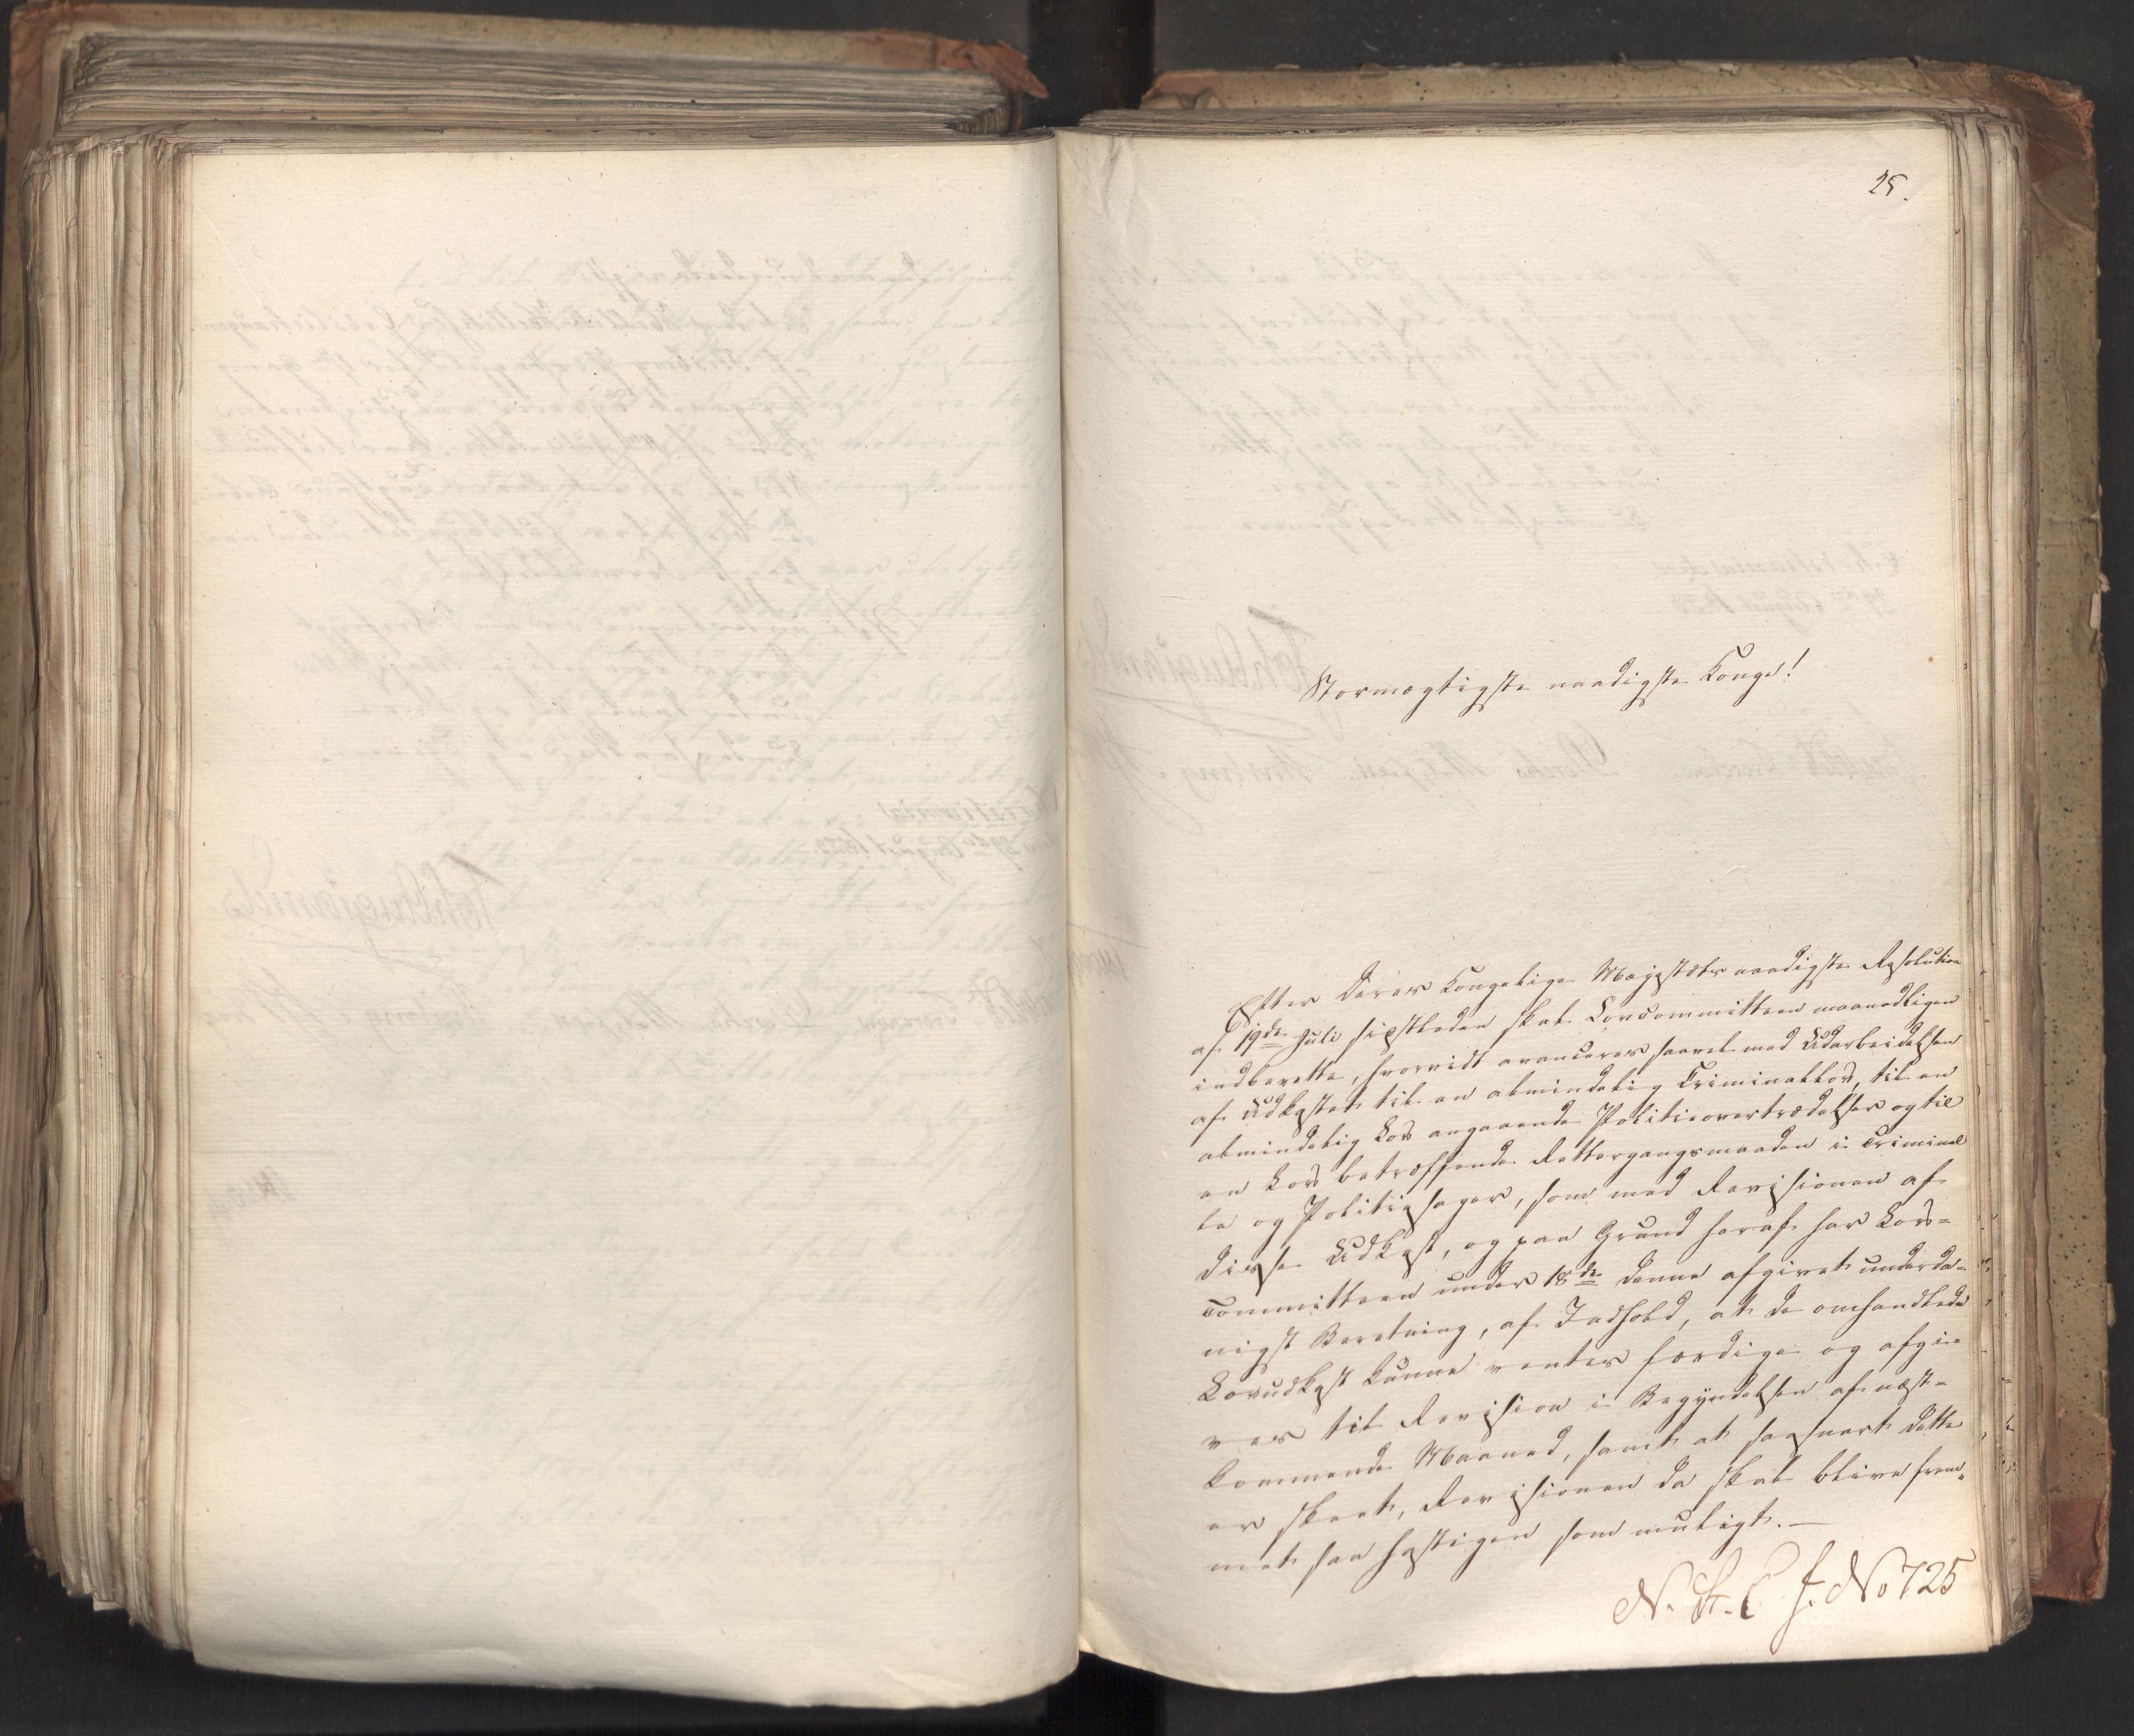 25.
Stormægtigste naadigste Konge!
Efter Deres Kongelige Majestæts naadigste Resolution
af 19de Juli sidstleden skal Lovcommitteen maanedligen
indberette, hvorvidt avanceres saavel med Udarbeidelsen
af Udkastet til en almindelig Criminallov, til en
almindelig Lov angaaende Politieovertrædelser og til
en Lov betræffende Rettergangsmaaden i Criminel
le og Politiesager, som med Revisionen af
disse Udkast, og paa Grund heraf har Lov-
committeen under 18de denne afgivet underda-
nigst Beretning, af Indhold, at de omhandlede
Lovudkast kunne ventes færdige og afgi-
ves til Revision i Begyndelsen af næst-
kommende Maaned, samt at saasnart dette
er skeet, Revisionen da skal blive frem-
met saa hastigen som muligt. —
N. St. C. J. No 725